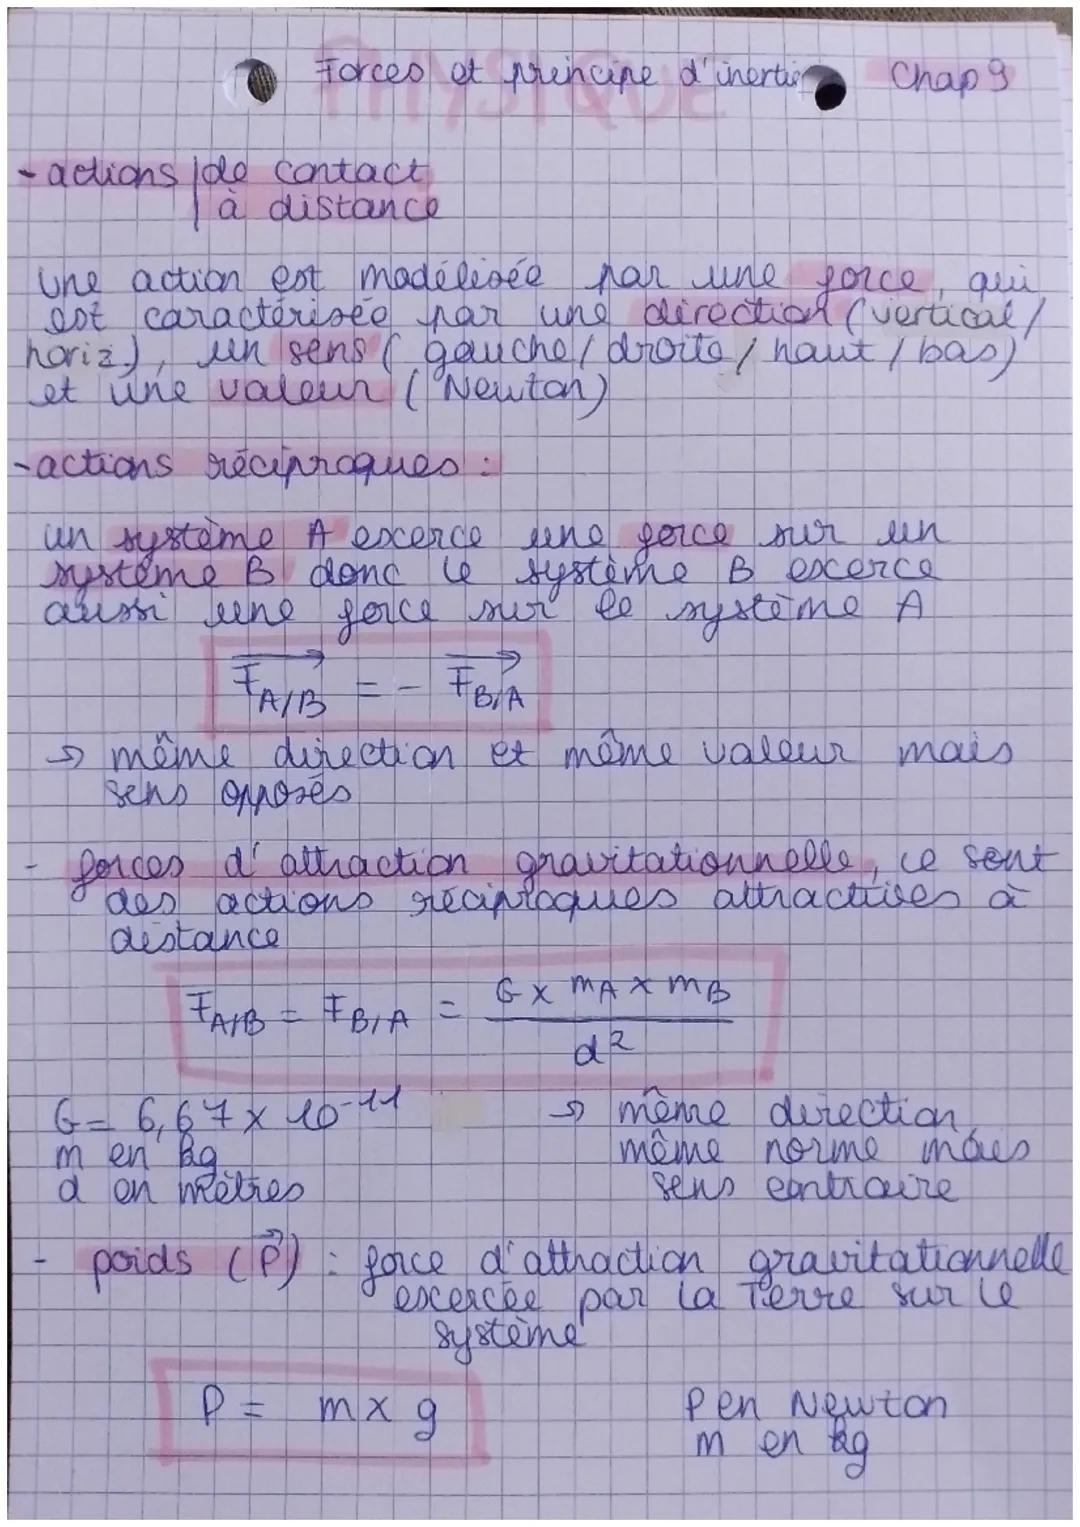 PHYSIQUE
Forces et principe d'inertie Chap 9
- actions de contact
à distance
une action est modélisée par une force, qui
est caractérisée par une direction (vertical/
horiz), un sens (gauche/droite/haut/bas)
et une valeur (Newton)
- actions réciproques :
un système A excerce une force sur un
système B donc le système B excerce
aussi une force sur le système A
F⃗A/B = - F⃗B/A
→ même direction et même valeur mais
sens opposés
- forces d'attraction gravitationnelle, ce sont
des actions réciproques attractives à
distance
FA/B = FB/A = G x mA x mB
d²
G = 6,67 x 10⁻¹¹ → même direction,
m en kg même norme mais
d en mètres sens contraire
- poids (P⃗) : force d'attraction gravitationnelle
excercée par la Terre sur le
système
P = m x g P en Newton
m en kg